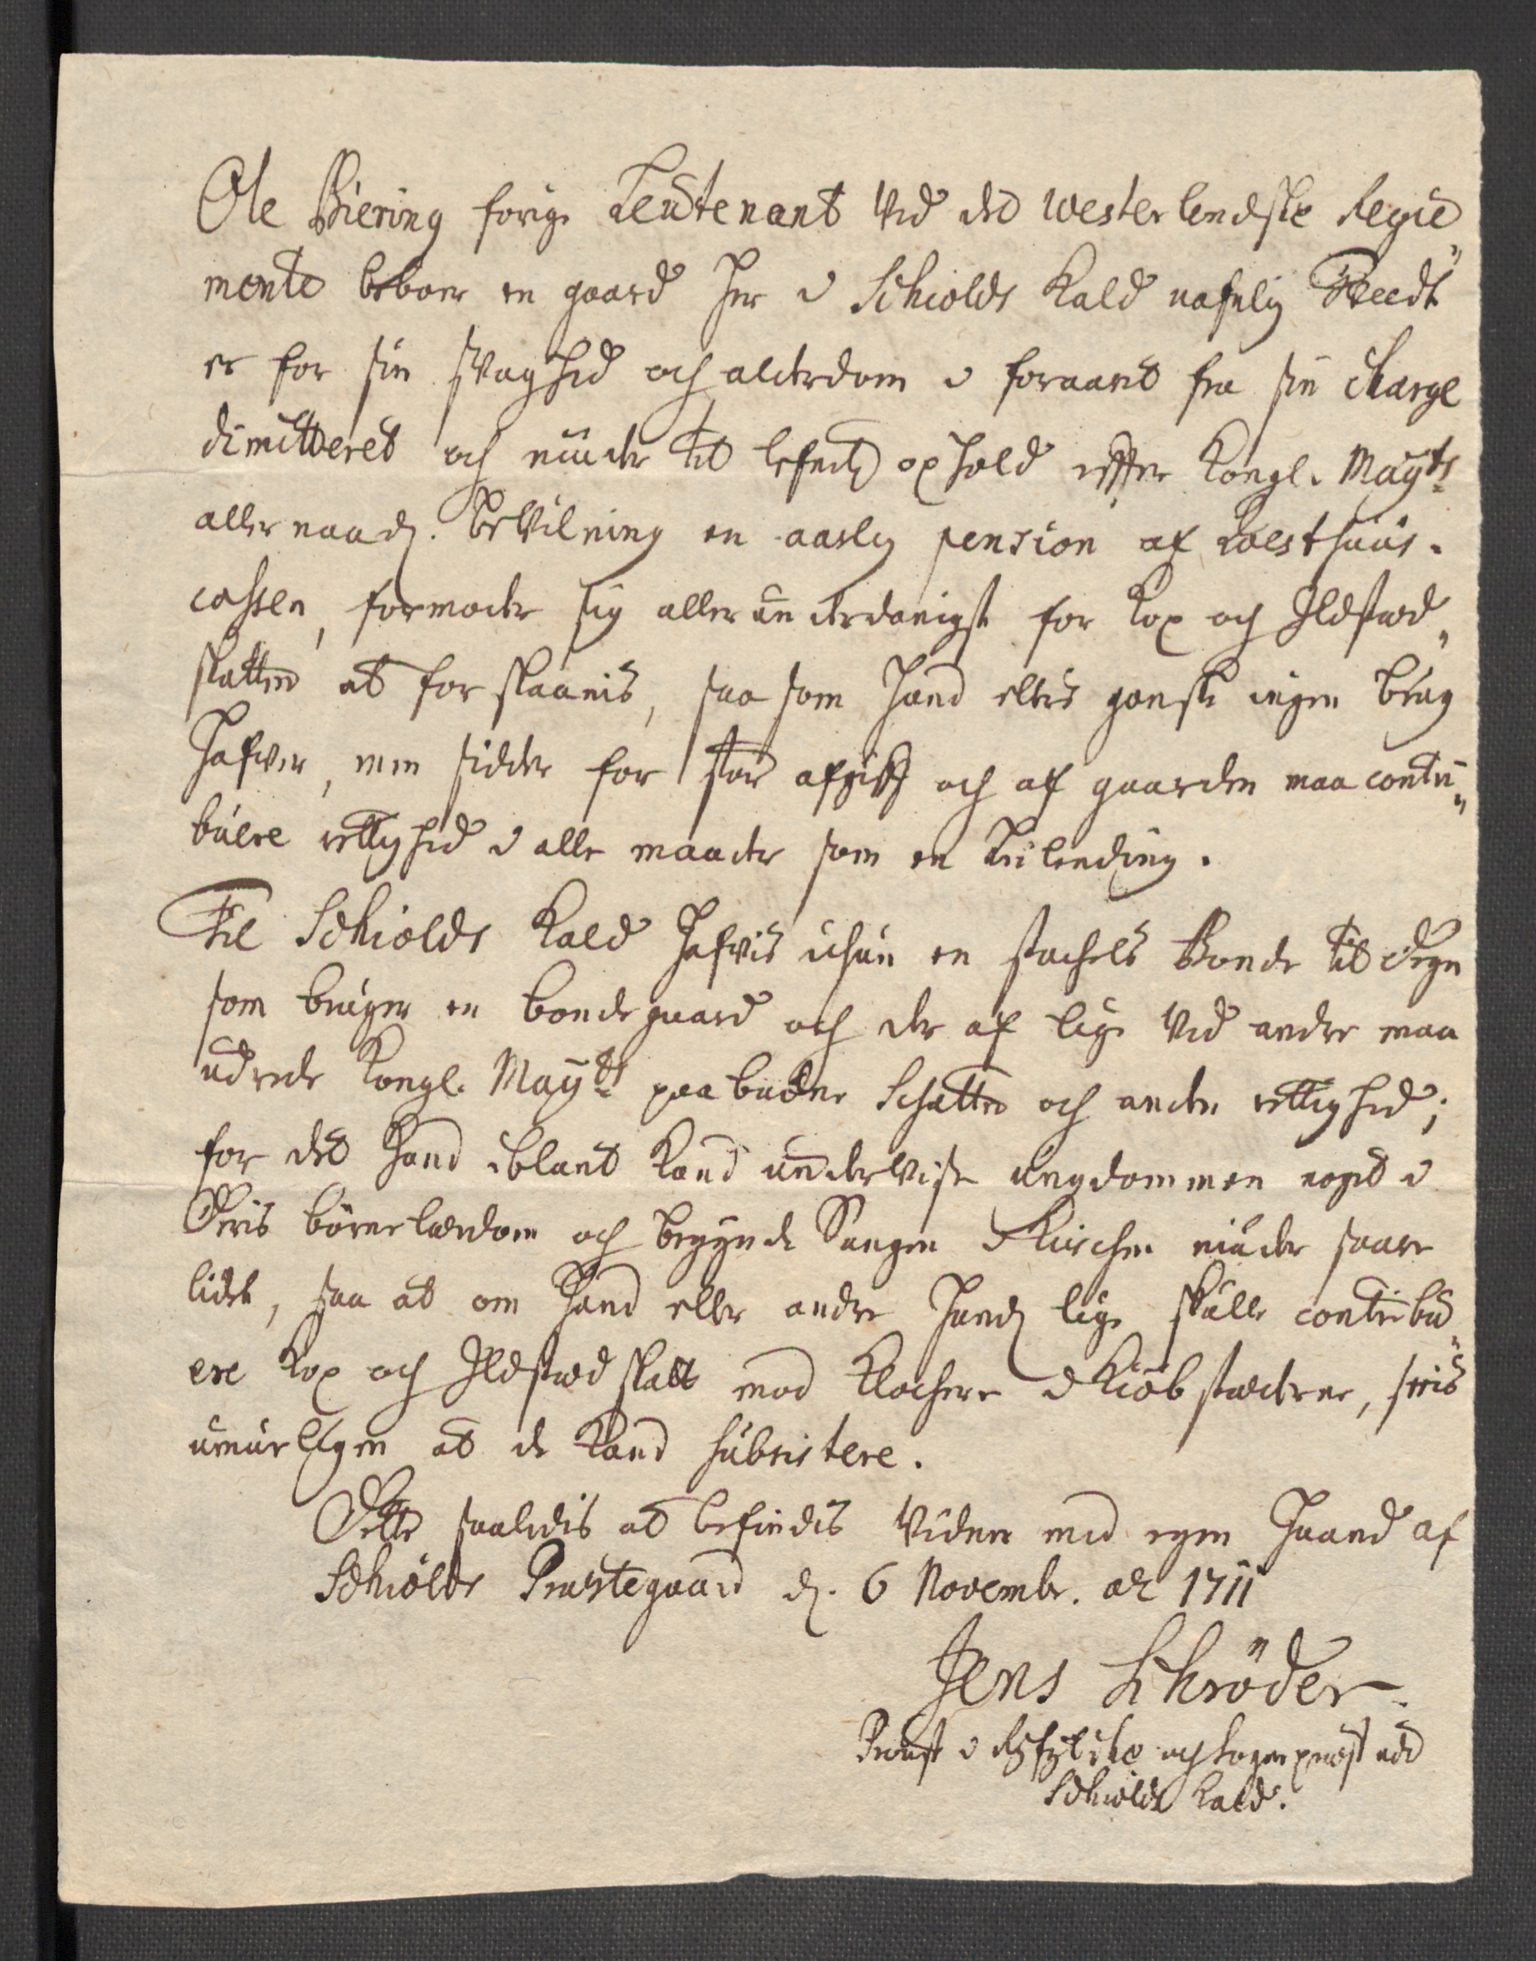 Ole Biering forige Leutenant Ved det westerlendske Regie„
mente beboer en gaard her i Schiolds Kald nafnlig
er for sin svaghed och alderdom i foraaret fra sin charge
dimitteret och niuder til lefnets ophold effter Kongl. Mayts
allernaad. bevilning en aarlig pension af Qvesthuus-
cassen, formoder sig allerunderdanigst for Kop och Ildsted„
skatten at forskaanis, saa som hand ellers ganske ingen brug
hafver, men sidder for stor afgift och af gaarden maa contri„
buere rettighed i alle maader som en leilending.
Til Schiolds Kald hafvis ichun en stachels Bonde til degn
som bruger en bondegaard och der af lige Ved andre maa
udrede Kongl. Mayts paabudne Schatter och anden rettighed;
for det hand iblant Kand undervise ungdommen noget i
deris børnelærdom och begynde Sangen i Kirchen niuder saare
lidet, saa at om hand eller andre hands lige skulle contribu„
ere Kop och Ildsted skatt mod Klochere i Kiøbstæderne,
umueligen at de Kand subsistere.
Dette saaledis at befindis Vidner med egen Haand af
Schiolds Præstegaard d. 6 Novembr. ao 1711
Jens Schrøder.
Proust i Ryfylcke och Sogneprest ved
Schiolds Kald.